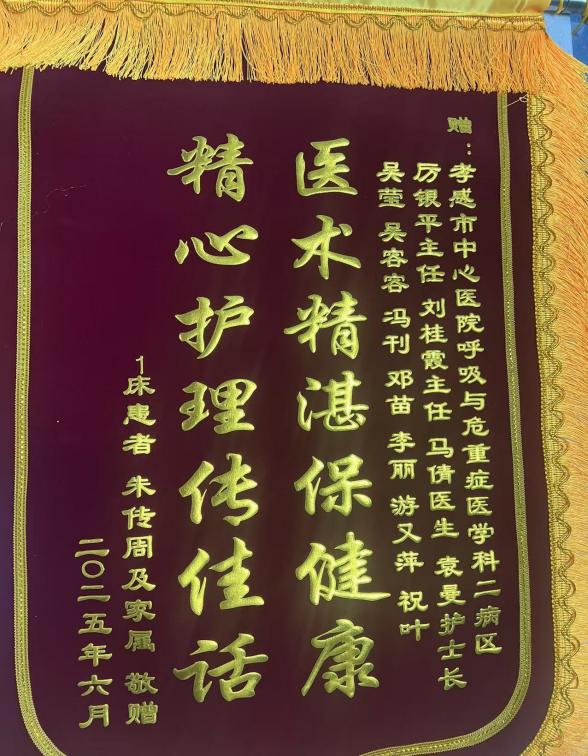 赠：孝感市中心医院呼吸与危重症医学科二病区
厉银平主任 刘桂霞主任 马倩医生 袁曼护士长
吴莹 吴容容 冯刊 邓苗 李丽 游又萍 祝叶
医术精湛保健康
精心护理传佳话
1床患者 朱传周及家属 敬赠
二〇二五年六月